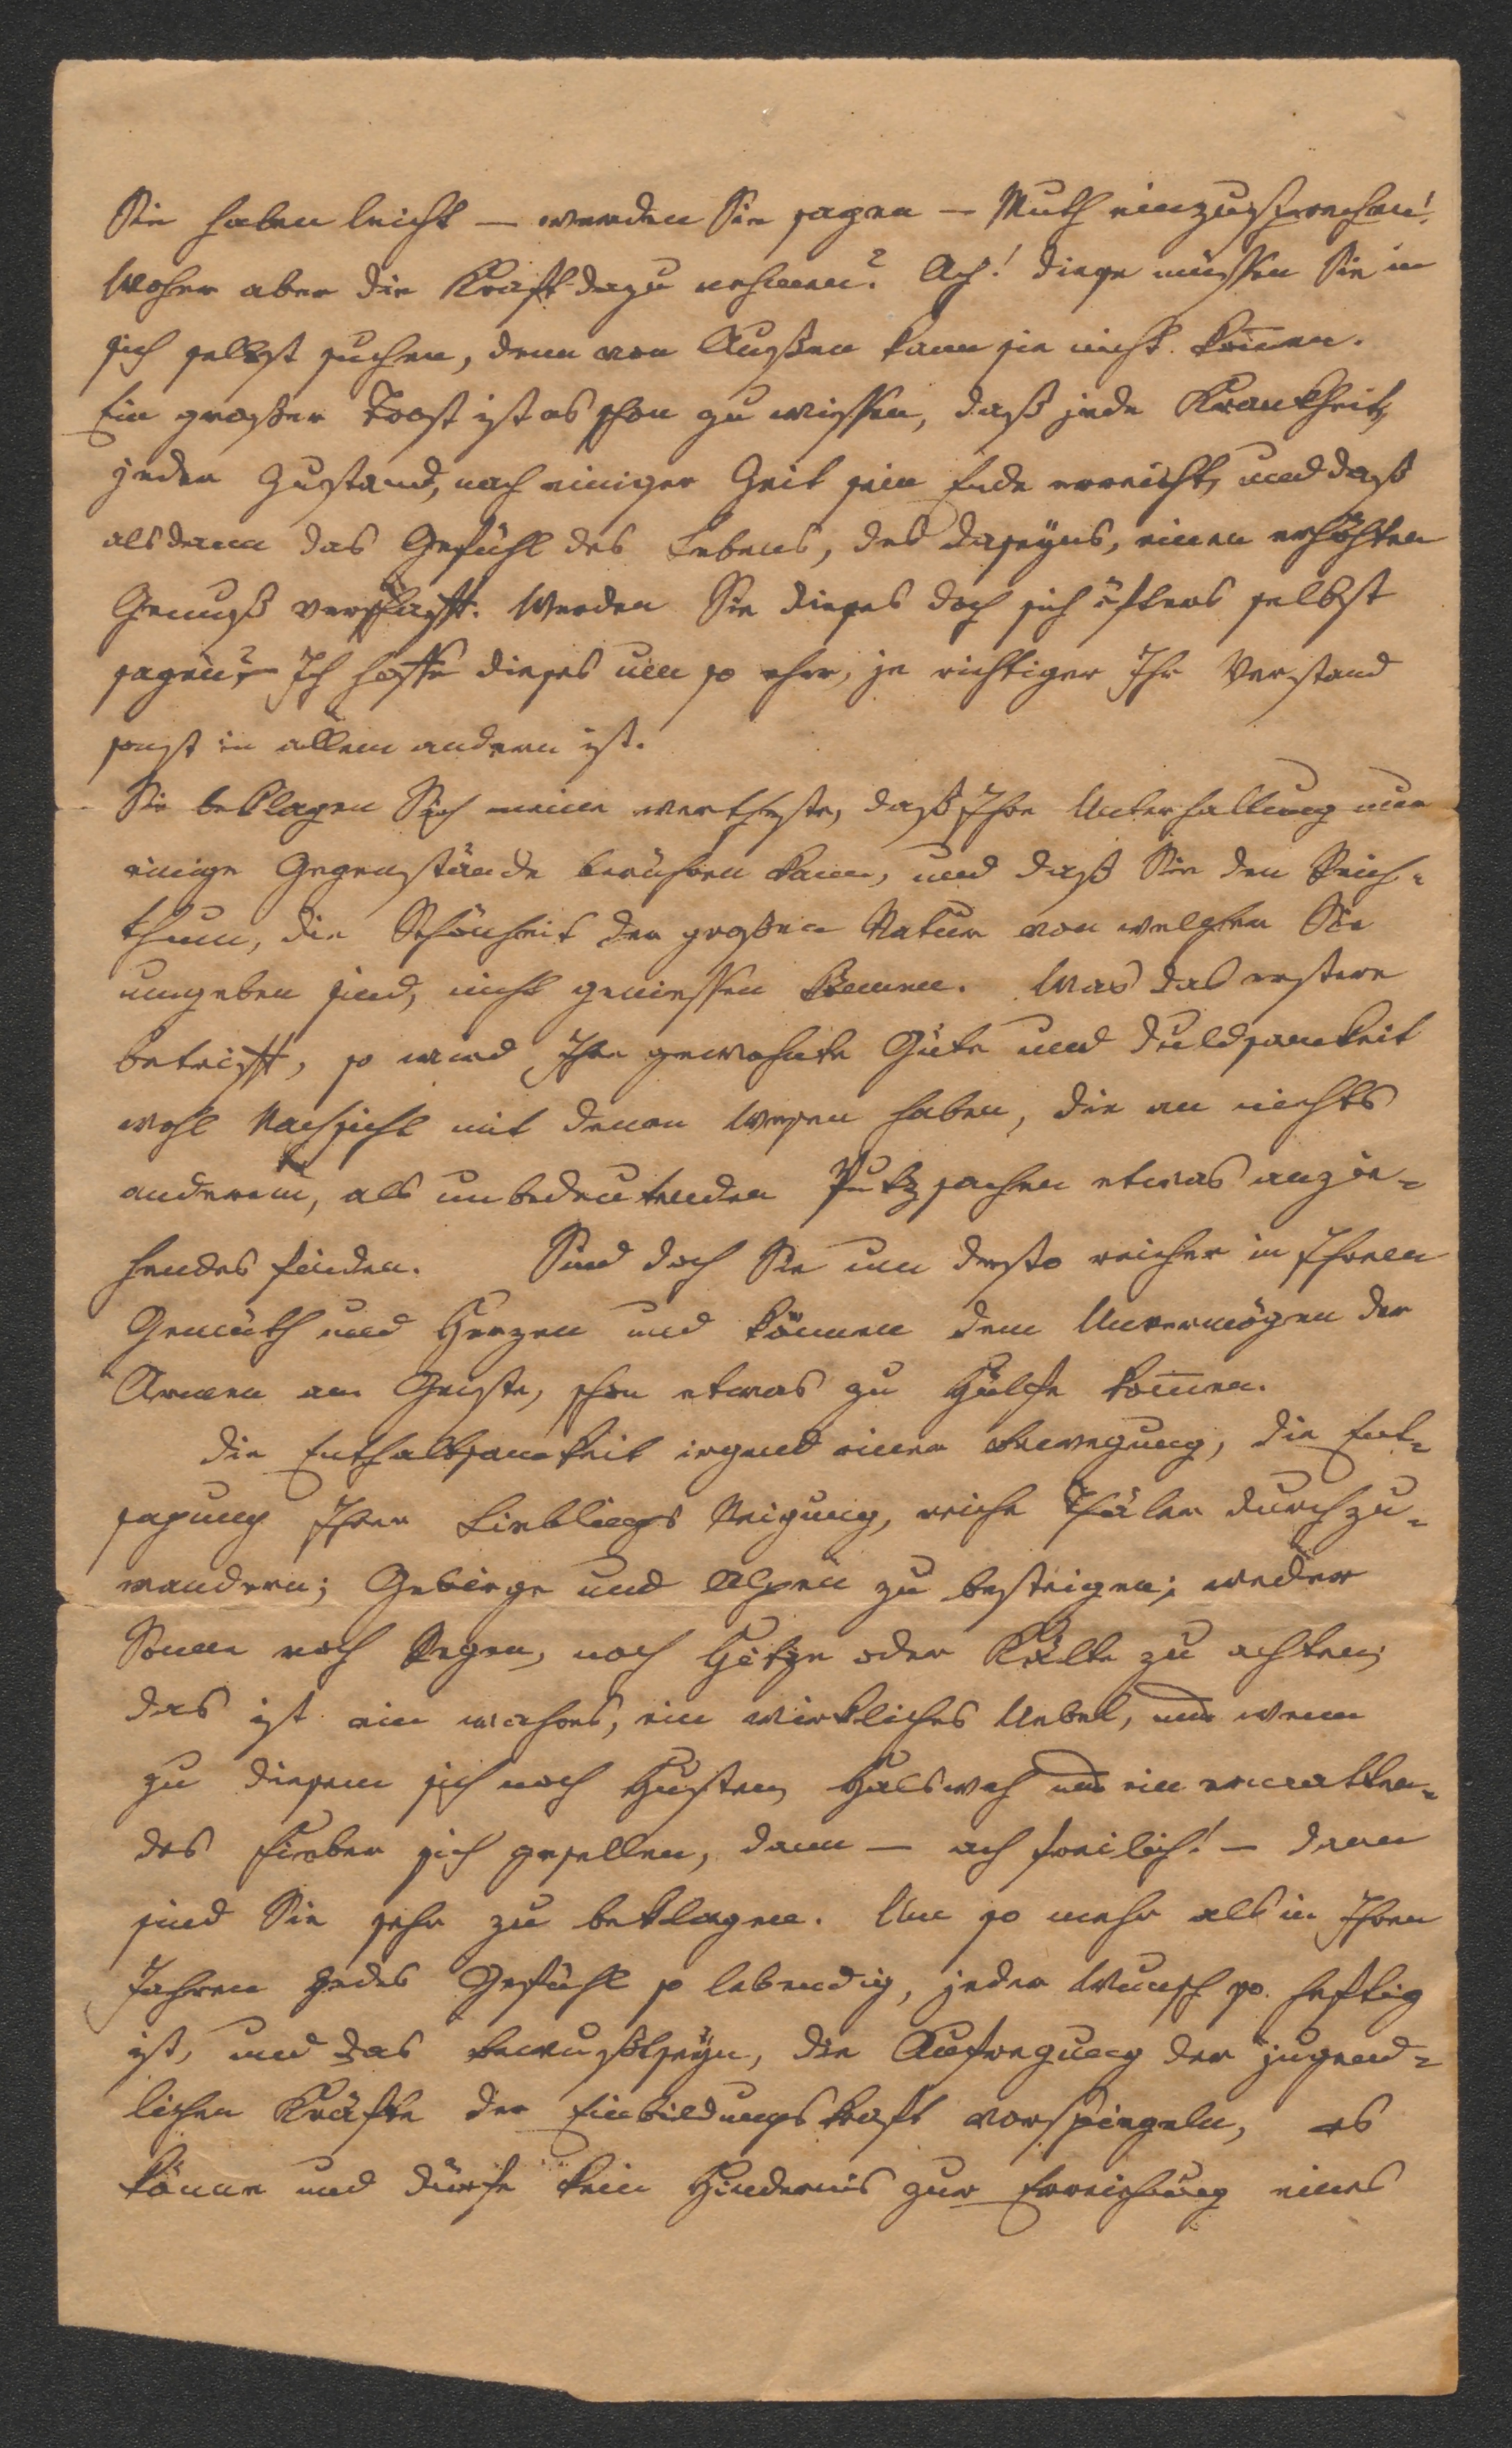 Sie haben leicht – werden Sie sagen – Muth einzusprechen!
Woher aber die Kraft dazu nehmen? Ach! diese müssen Sie in
sich selbst suchen, denn von Außen kann sie nicht kom̄en.
Ein großer Trost ist es schon zu wissen, daß jede Krankheit,
jeder Zustand, nach einiger Zeit sein Ende erreicht, und daß
alsdann das Gefühl des Lebens, des Daseyns, einen erhöhten
Genuß verschafft. Werden Sie dieses doch sich öfters selbst
sagen? – Ich hoffe dieses um so eher, je richtiger Ihr Verstand
sonst in allem andern ist.
Sie beklagen Sich meine wertheste, daß Ihre Unterhaltung nur
einige Gegenstände berühren kann, und daß Sie den Reich=
thum, die Schönheit der großen Natur von welcher Sie
umgeben sind, nicht geniessen können. Was das erstere
betrifft, so wird Ihre gewohnte Güte und Duldsamkeit
wohl Nachsicht mit denen Wesen haben, die an nichts
anderem, als unbedeutenden Putzsachen etwas anzie=
hendes finden. Sind doch Sie um desto reicher in Ihrem
Gemüth und Herzen und können dem Unvermögen der
Armen am Geiste, schon etwas zu Hülfe kom̄en.
Die Enthaltsamkeit irgend einer Bewegung, die Ent=
sagung Ihrer Lieblings Neigung, reiche Thäler durchzu=
wandern; Gebirge und Alpen zu besteigen; weder
Sonne noch Regen, noch Hitze oder Kälte zu achten;
das ist ein wahres, ein wirkliches Uebel, und wenn
zu diesem sich noch Husten, Halsweh und ein ermatten=
des Fieber sich gesellen, dann – ach freilich! – dann
sind Sie sehr zu beklagen. Um so mehr als in Ihren
Jahren jedes Gefühl so lebendig, jeder Wunsch so heftig
ist, und das Bewußtseyn, die Aufregung der jugend=
lichen Kräfte der Einbildungskraft vorspiegeln, es
könne und dürfe kein Hindernis zur Erreichung eines